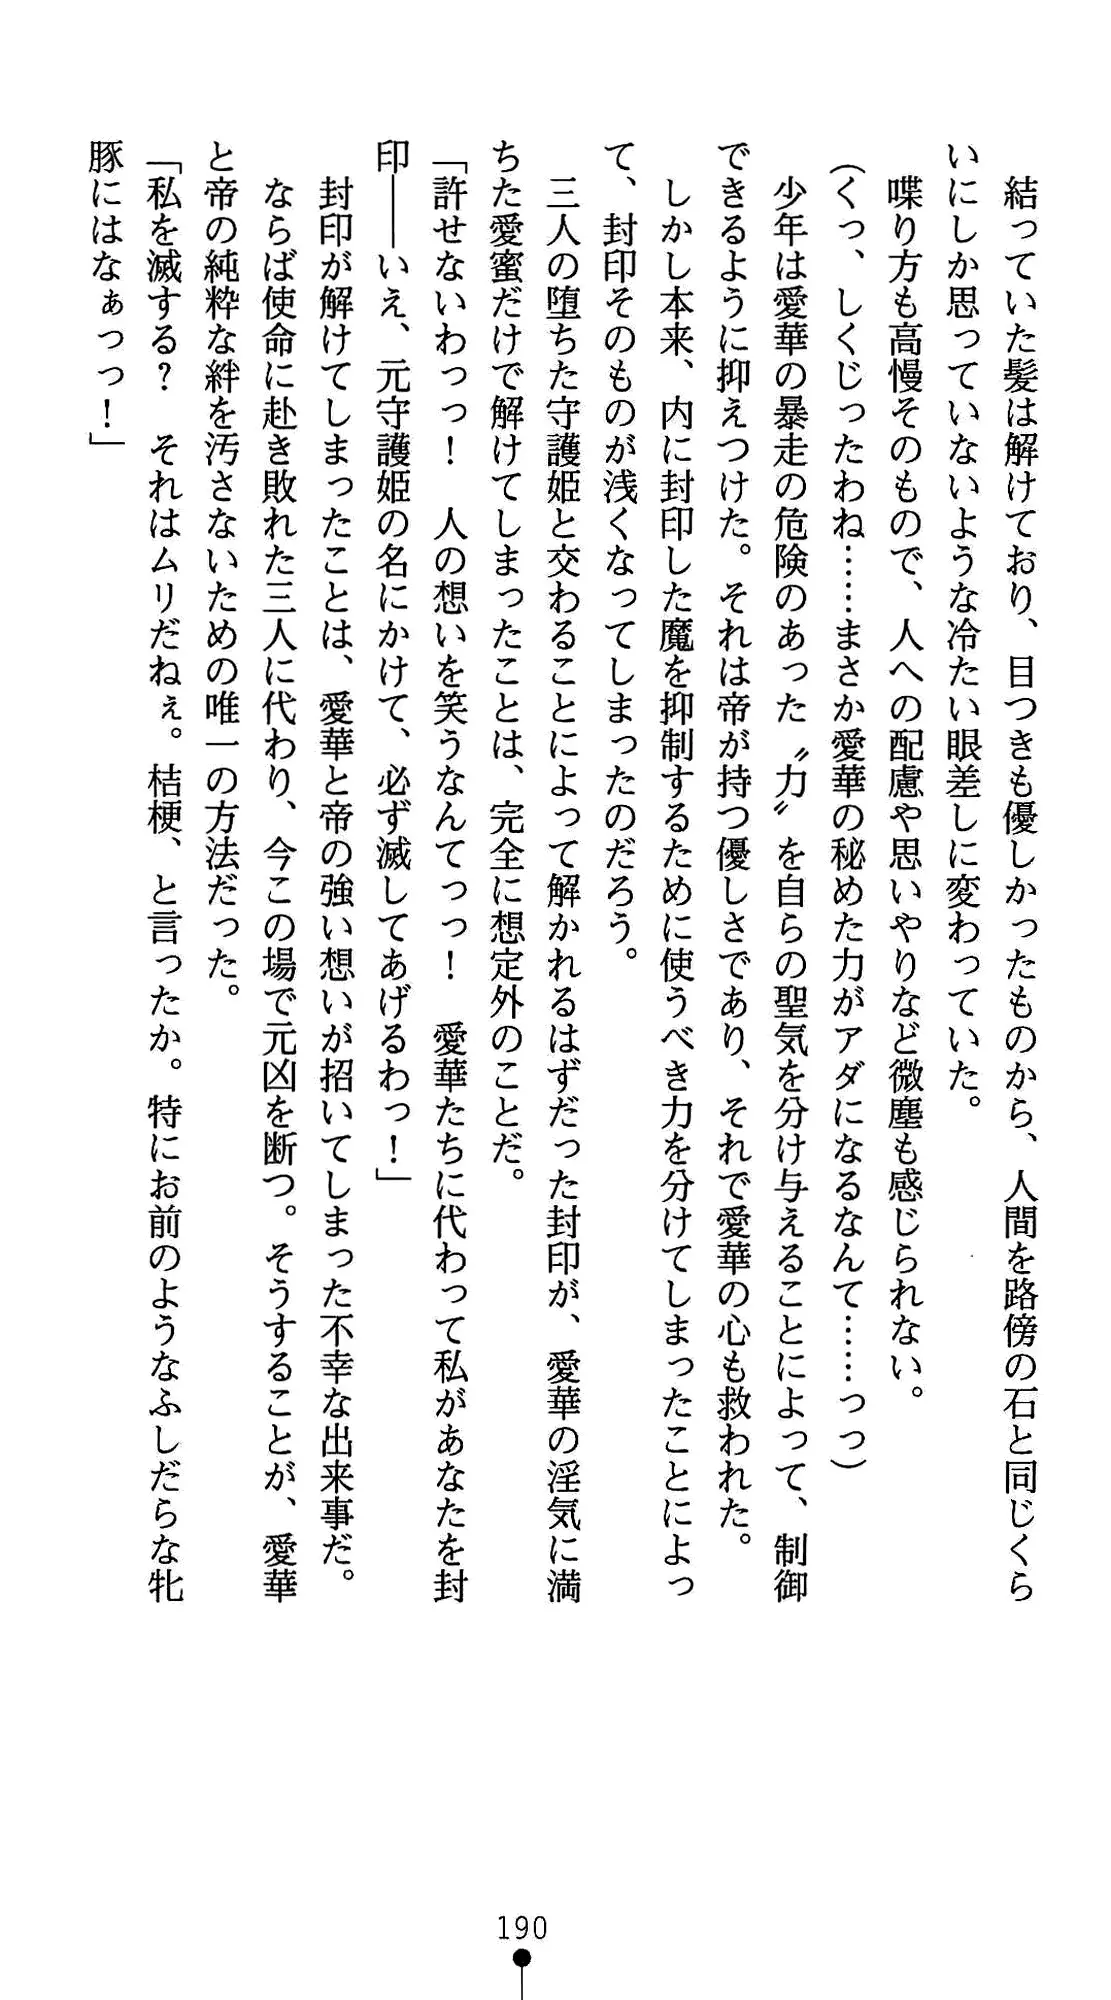 結っていた髪は解けており、目つきも優しかったものから、人間を路傍の石と同じくら
いにしか思っていないような冷たい眼差しに変わっていた。
　喋り方も高慢そのもので、人への配慮や思いやりなど微塵も感じられない。
（くっ、しくじったわね……まさか愛華の秘めた力がアダになるなんて……っっ）
　少年は愛華の暴走の危険のあった〝力〟を自らの聖気を分け与えることによって、制御
できるように抑えつけた。それは帝が持つ優しさであり、それで愛華の心も救われた。
　しかし本来、内に封印した魔を抑制するために使うべき力を分けてしまったことによっ
て、封印そのものが浅くなってしまったのだろう。
　三人の堕ちた守護姫と交わることによって解かれるはずだった封印が、愛華の淫気に満
ちた愛蜜だけで解けてしまったことは、完全に想定外のことだ。
「許せないわっっ！　人の想いを笑うなんてっっ！　愛華たちに代わって私があなたを封
印――いえ、元守護姫の名にかけて、必ず滅してあげるわっ！」
　封印が解けてしまったことは、愛華と帝の強い想いが招いてしまった不幸な出来事だ。
　ならば使命に赴き敗れた三人に代わり、今この場で元凶を断つ。そうすることが、愛華
と帝の純粋な絆を汚さないための唯一の方法だった。
「私を滅する？　それはムリだねぇ。桔梗、と言ったか。特にお前のようなふしだらな牝
豚にはなぁっっ！」
190